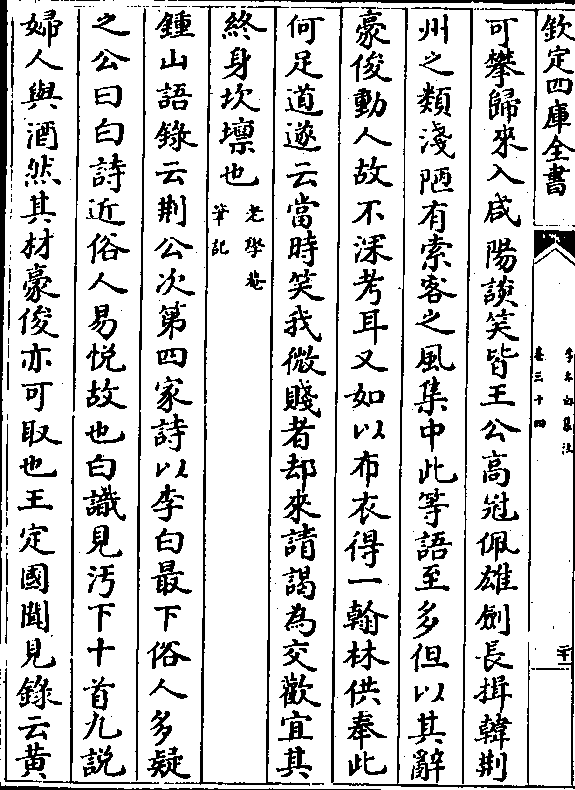 欽定四庫全書
李太白集注
卷三十四
可攀歸來入咸陽談笑皆王公高冠佩雄劍長揖韓荆
州之類淺陋有索客之風集中此等語至多但以其辭
豪俊動人故不深考耳又如以布衣得一翰林供奉此
何足道遂云當時笑我微賤者却來請謁為交歡宜其
終身坎壈也老學菴筆記
鍾山語錄云荆公次第四家詩以李白最下俗人多疑
之公曰白詩近俗人易悦故也白識見汚下十首九說
婦人與酒然其材豪俊亦可取也王定國聞見錄云黄